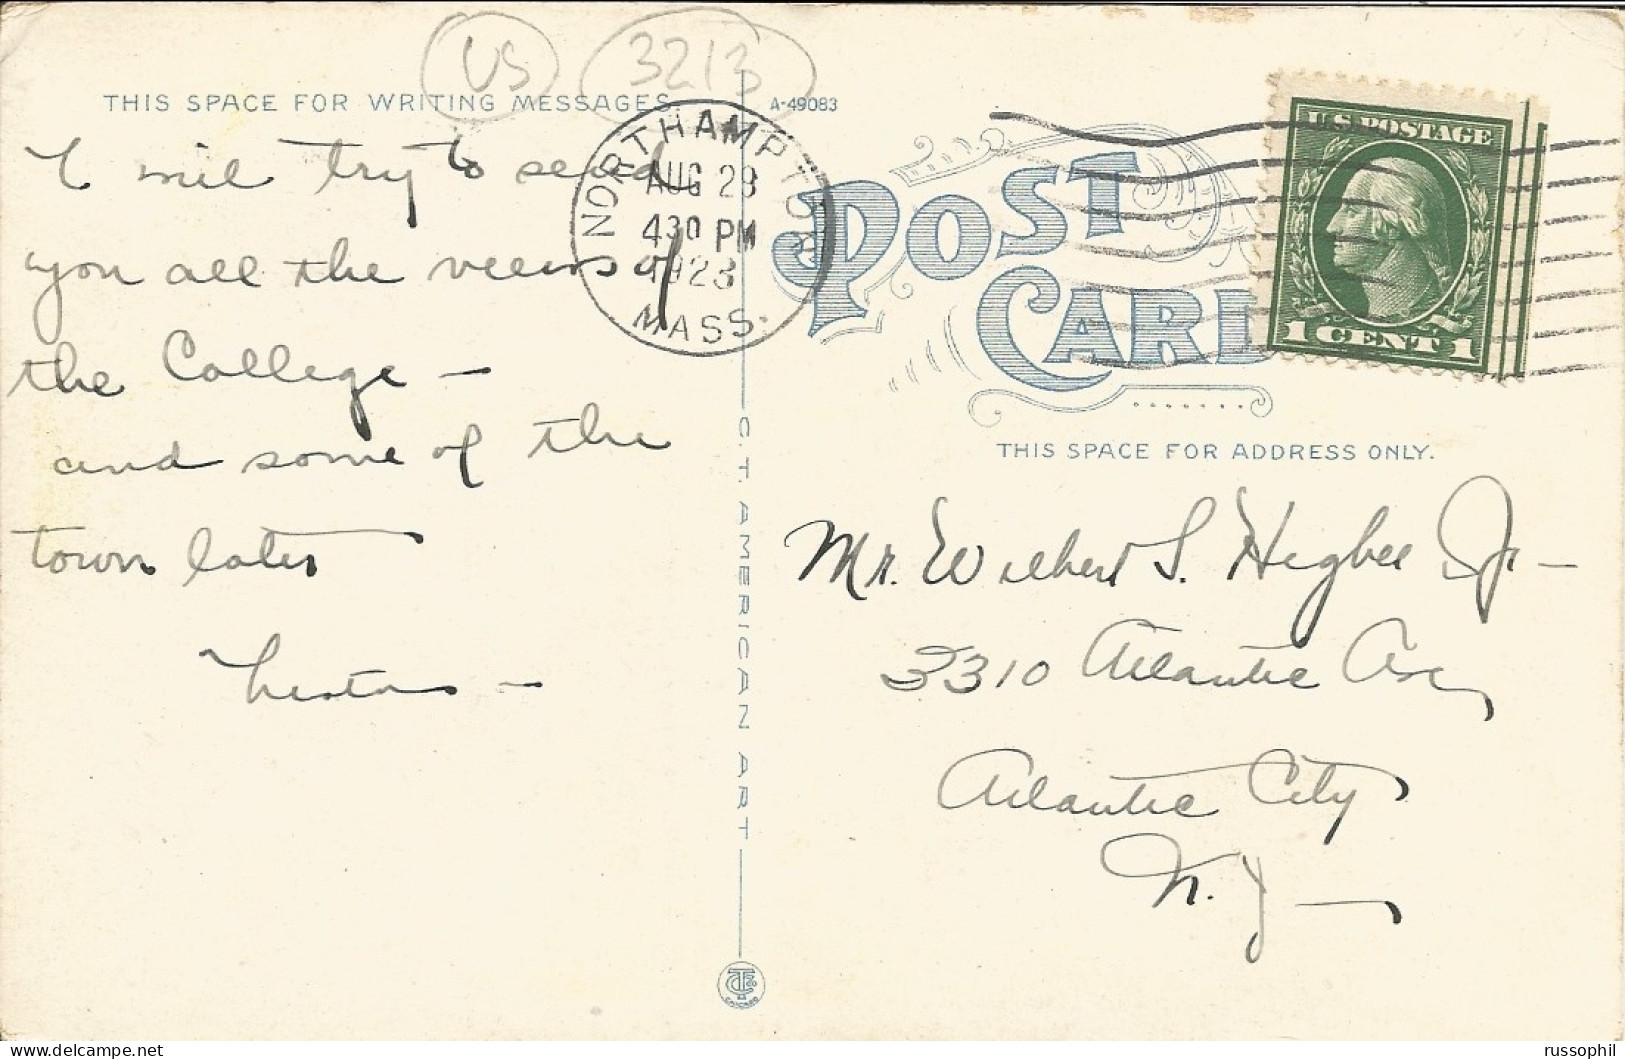 US 3213
THIS SPACE FOR WRITING MESSAGES.
A-49083
I will try to send
you all the views of
the College —
and some of the
town later
NORTHAMPTON
AUG 28
430 PM
1923
MASS.
POST
CARD
U.S. POSTAGE
1 CENT 1
THIS SPACE FOR ADDRESS ONLY.
Mr. Wilbert S. Higbee Jr —
3310 Atlantic Ave,
Atlantic City
N.J —
C.T. AMERICAN ART
CHICAGO
russophil
delcampe.net